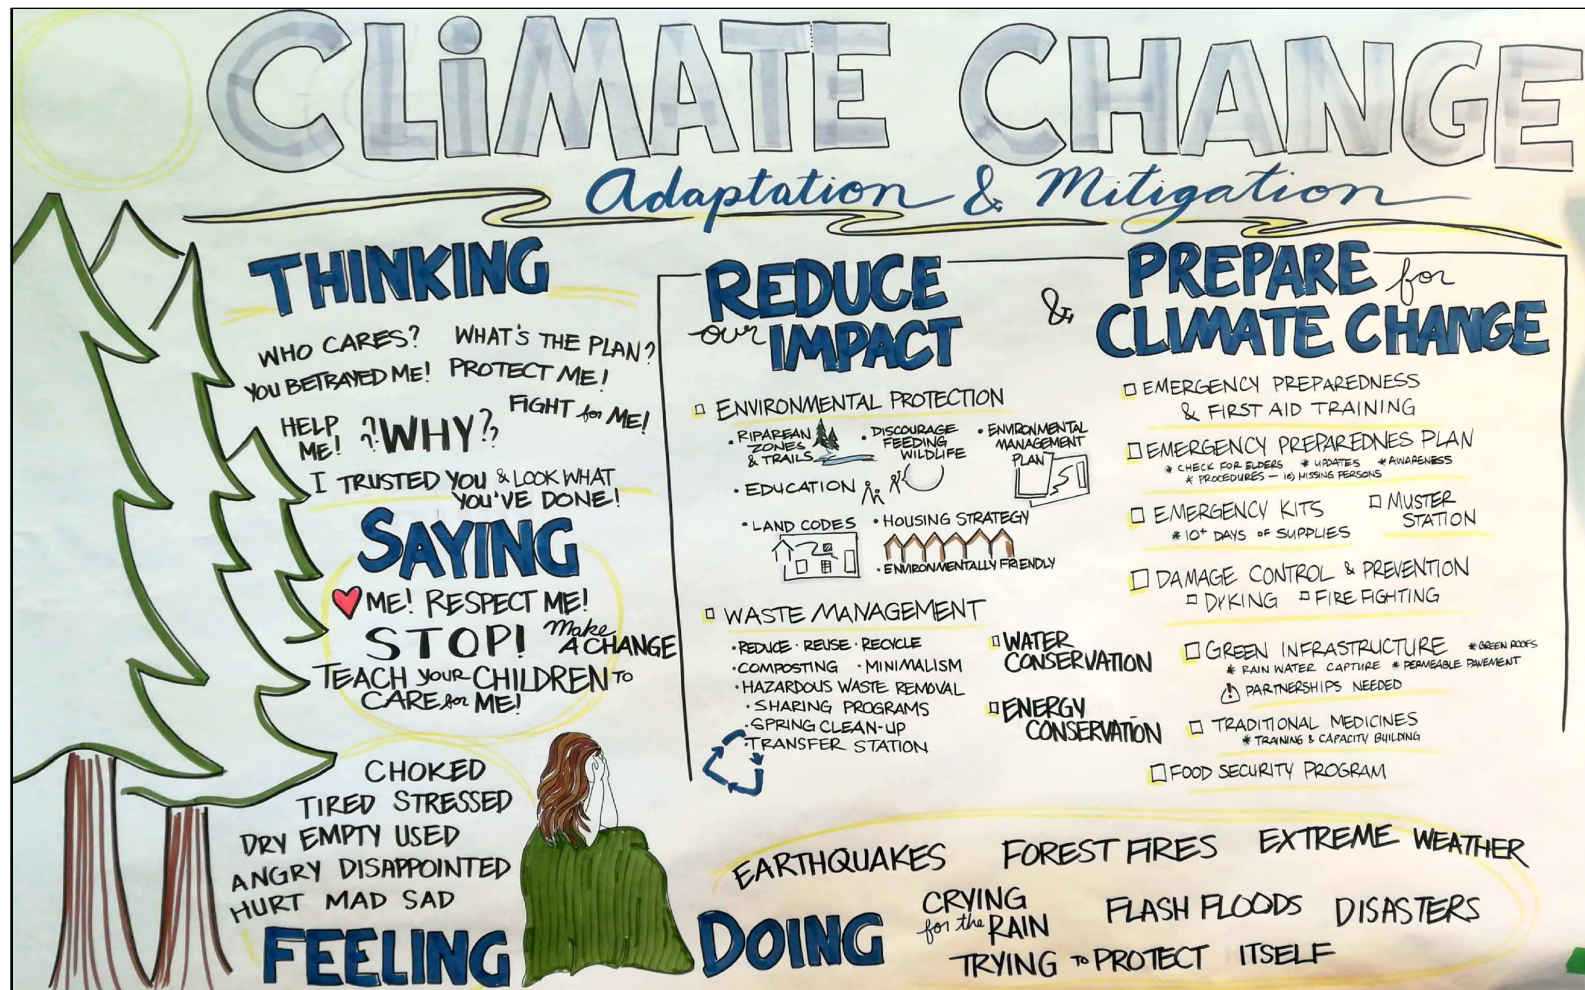 CLiMATE CHANGE
Adaptation & Mitigation
THINKING
WHO CARES?
WHAT'S THE PLAN?
YOU BETRAYED ME!
PROTECT ME!
HELP
ME!
??WHY??
FIGHT for ME!
I TRUSTED YOU & LOOK WHAT
YOU'VE DONE!
SAYING
ME! RESPECT ME!
STOP!
Make
A CHANGE
TEACH YOUR CHILDREN TO
CARE for ME!
CHOKED
TIRED STRESSED
DRY EMPTY USED
ANGRY DISAPPOINTED
HURT MAD SAD
FEELING
REDUCE
our IMPACT
&
PREPARE for
CLIMATE CHANGE
ENVIRONMENTAL PROTECTION
• RIPAREAN
ZONES
& TRAILS
• DISCOURAGE
FEEDING
WILDLIFE
• ENVIRONMENTAL
MANAGEMENT
PLAN
• EDUCATION
• LAND CODES
• HOUSING STRATEGY
• ENVIRONMENTALLY FRIENDLY
WASTE MANAGEMENT
• REDUCE • REUSE • RECYCLE
• COMPOSTING • MINIMALISM
• HAZARDOUS WASTE REMOVAL
• SHARING PROGRAMS
• SPRING CLEAN-UP
• TRANSFER STATION
WATER
CONSERVATION
ENERGY
CONSERVATION
EMERGENCY PREPAREDNESS
& FIRST AID TRAINING
EMERGENCY PREPAREDNES PLAN
* CHECK FOR ELDERS * UPDATES * AWARENESS
* PROCEDURES – ie) MISSING PERSONS
EMERGENCY KITS
* 10+ DAYS OF SUPPLIES
MUSTER
STATION
DAMAGE CONTROL & PREVENTION
DYKING FIRE FIGHTING
GREEN INFRASTRUCTURE * GREEN ROOFS
* RAIN WATER CAPTURE * PERMEABLE PAVEMENT
! PARTNERSHIPS NEEDED
TRADITIONAL MEDICINES
* TRAINING & CAPACITY BUILDING
FOOD SECURITY PROGRAM
DOING
EARTHQUAKES
FOREST FIRES
EXTREME WEATHER
CRYING
for the RAIN
FLASH FLOODS
DISASTERS
TRYING TO PROTECT ITSELF